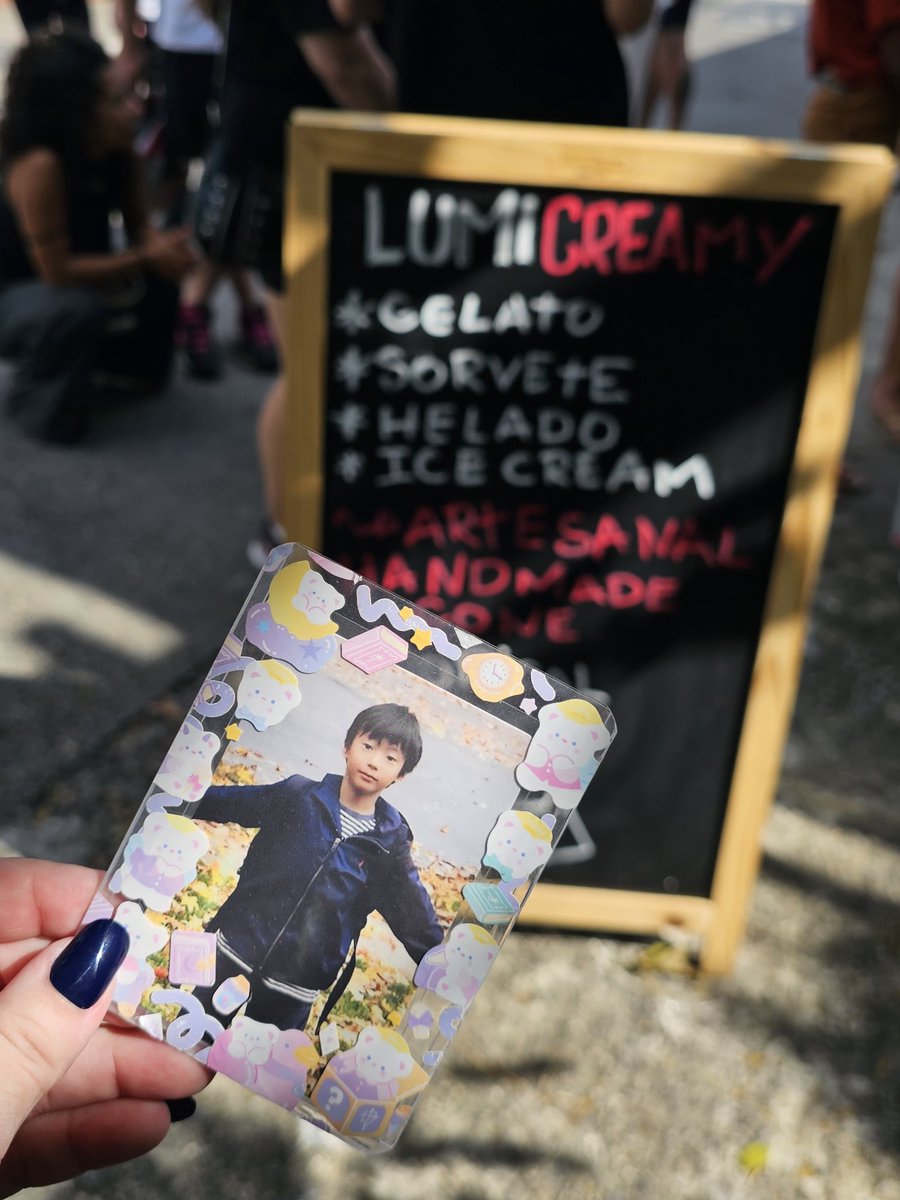 LUMiCREAMY
*GELATO
*SORVETE
*HELADO
*ICE CREAM
ARTESANAL
HANDMADE
?